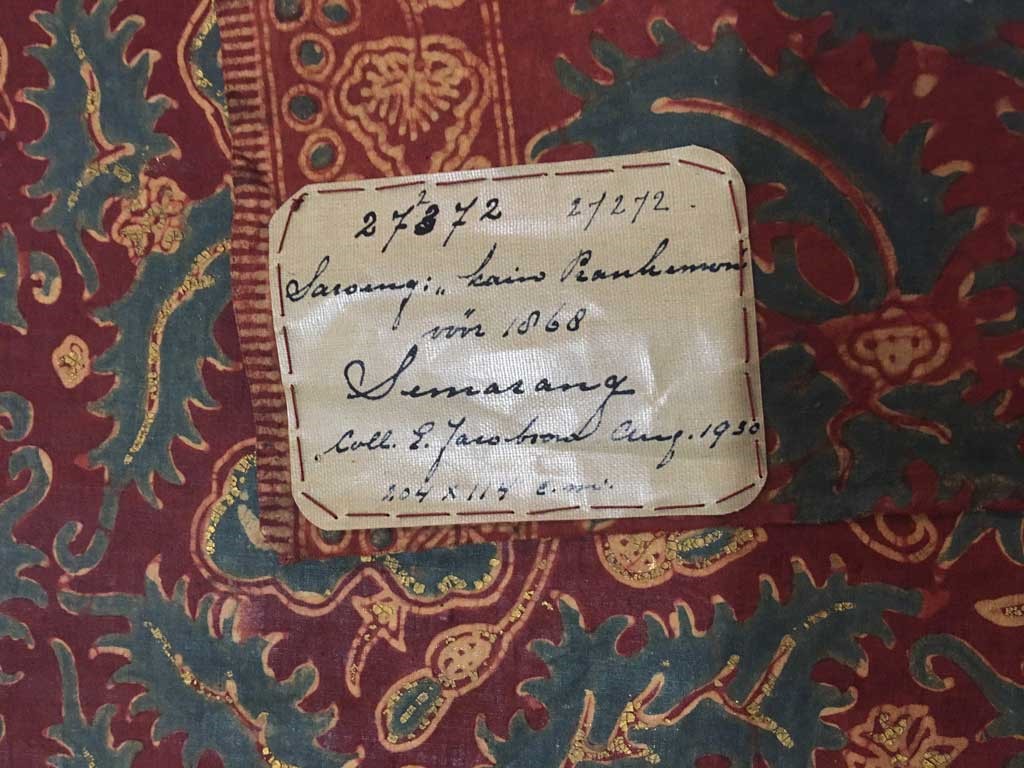 27372 27272.
Saroeng: „ kain
vór 1868
Semarang
Coll. E. Jacobson Aug. 1930
204 x 114 c.m.